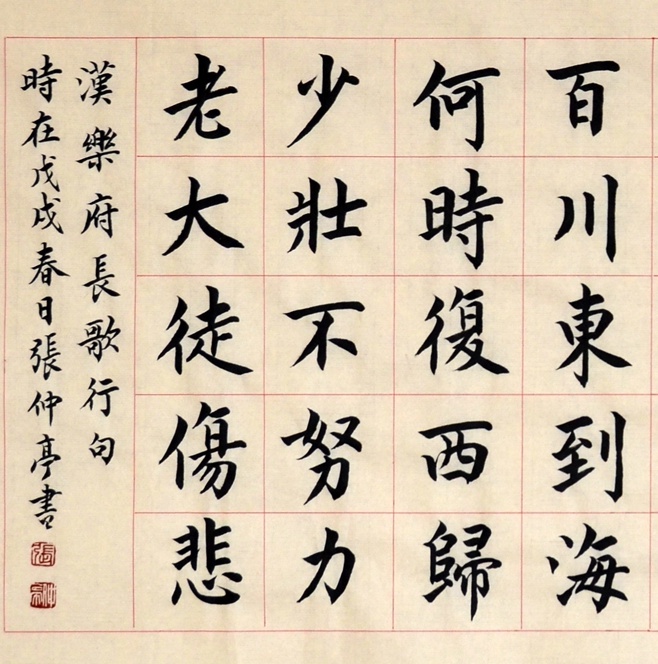 百川東到海
何時復西歸
少壯不努力
老大徒傷悲
漢樂府長歌行句
時在戊戌春日張仲亭書
張